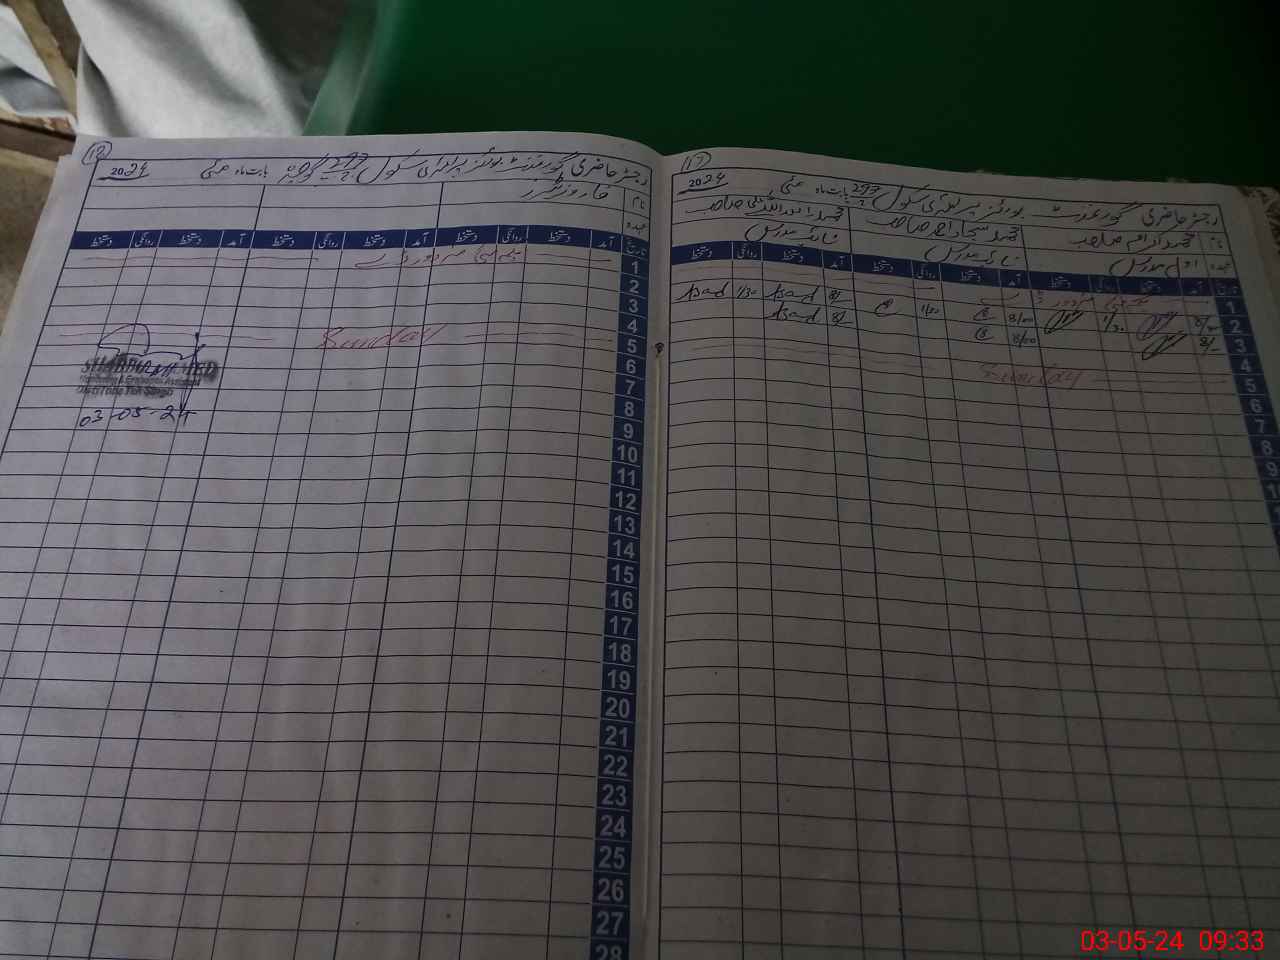 17
رجسٹر حاضری گورنمنٹ بوائز پرائمری سکول 297 بابت ماہ مئی 2024
نام محمد اکرام صاحب محمد سجاد احمد صاحب محمد اسد اللہ صاحب
عہدہ اول مدرس نائب مدرس نائب مدرس
تاریخ آمد دستخط روانگی دستخط آمد دستخط روانگی دستخط آمد دستخط روانگی دستخط
1
2 8/00 1/30 8/00 1/30 8/- Asad 1/30 Asad
3 8/- 8/00 8/- Asad
4
5 Sunday
6
7
8
9
18
رجسٹر حاضری گورنمنٹ بوائز پرائمری سکول 297 گوجرہ بابت ماہ مئی 2024
نام
عہدہ
تاریخ آمد دستخط روانگی دستخط آمد دستخط روانگی دستخط آمد دستخط روانگی دستخط
1
2
3
4
5 Sunday
6
7
8
9
10
11
12
13
14
15
16
17
18
19
20
21
22
23
24
25
26
27
28
Monitoring & Evaluation Assistant
03-05-24
03-05-24 09:33